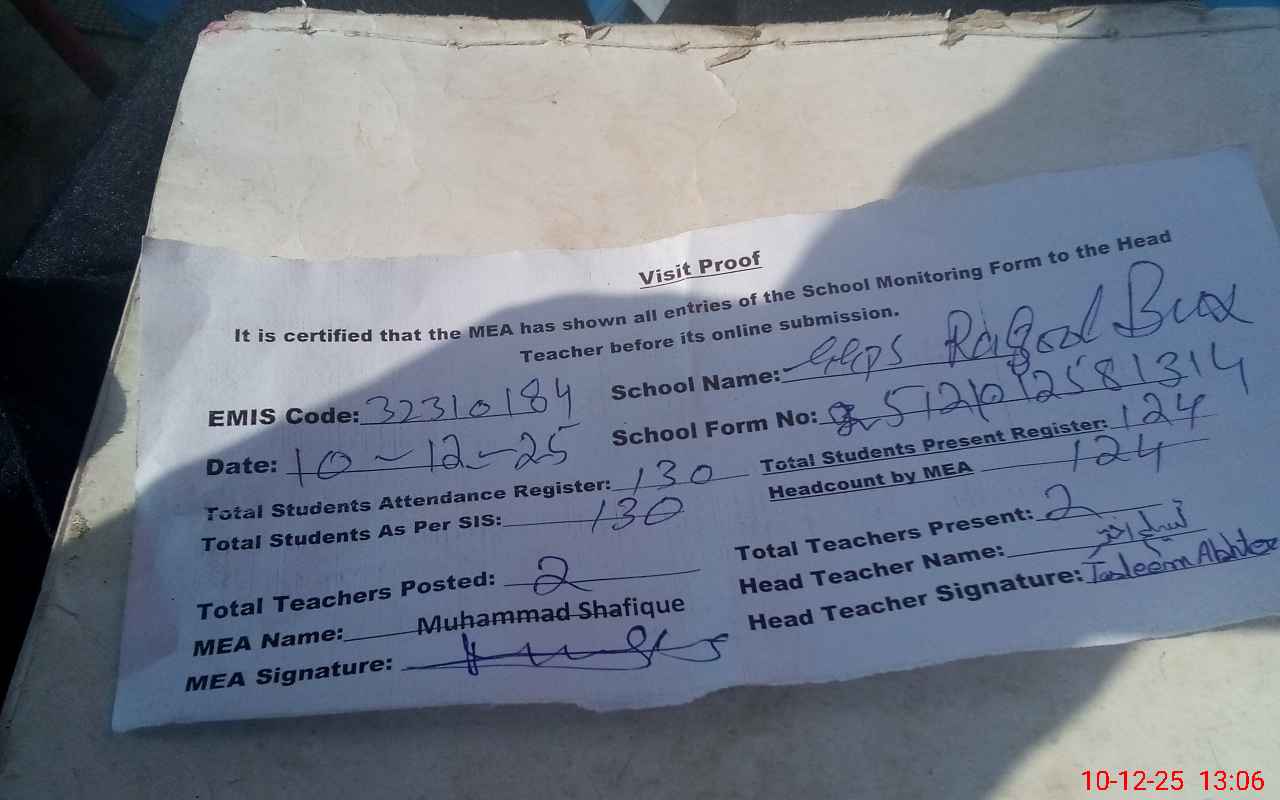 Visit Proof
It is certified that the MEA has shown all entries of the School Monitoring Form to the Head
Teacher before its online submission.
EMIS Code: 32310184
School Name: GGPS Bux
Date: 10-12-25
School Form No: 5121012581314
Total Students Attendance Register: 130
Total Students Present Register: 124
Total Students As Per SIS: 130
Headcount by MEA 124
Total Teachers Posted: 2
Total Teachers Present: 2
MEA Name: Muhammad Shafique
Head Teacher Name: تسلیم اختر
MEA Signature:
Head Teacher Signature: Tasleem Akhter
10-12-25 13:06